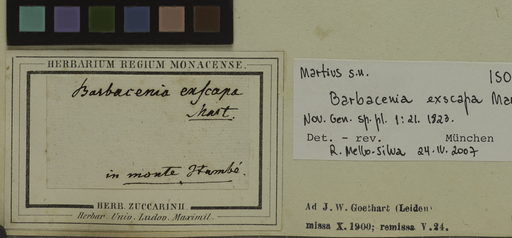 HERBARIUM REGIUM MONACENSE.
Barbacenia exscapa
Mart.
in monte Itambé.
HERB. ZUCCARINII
Herbar. Univ. Ludov. Maximil.
Martius s.n. ISO
Barbacenia exscapa Mar
Nov. Gen. sp. pl. 1: 21. 1823.
Det. - rev. München
R. Mello-Silva 24.IV.2007
Ad J. W. Goethart (Leiden)
missa X. 1900; remissa V. 24.